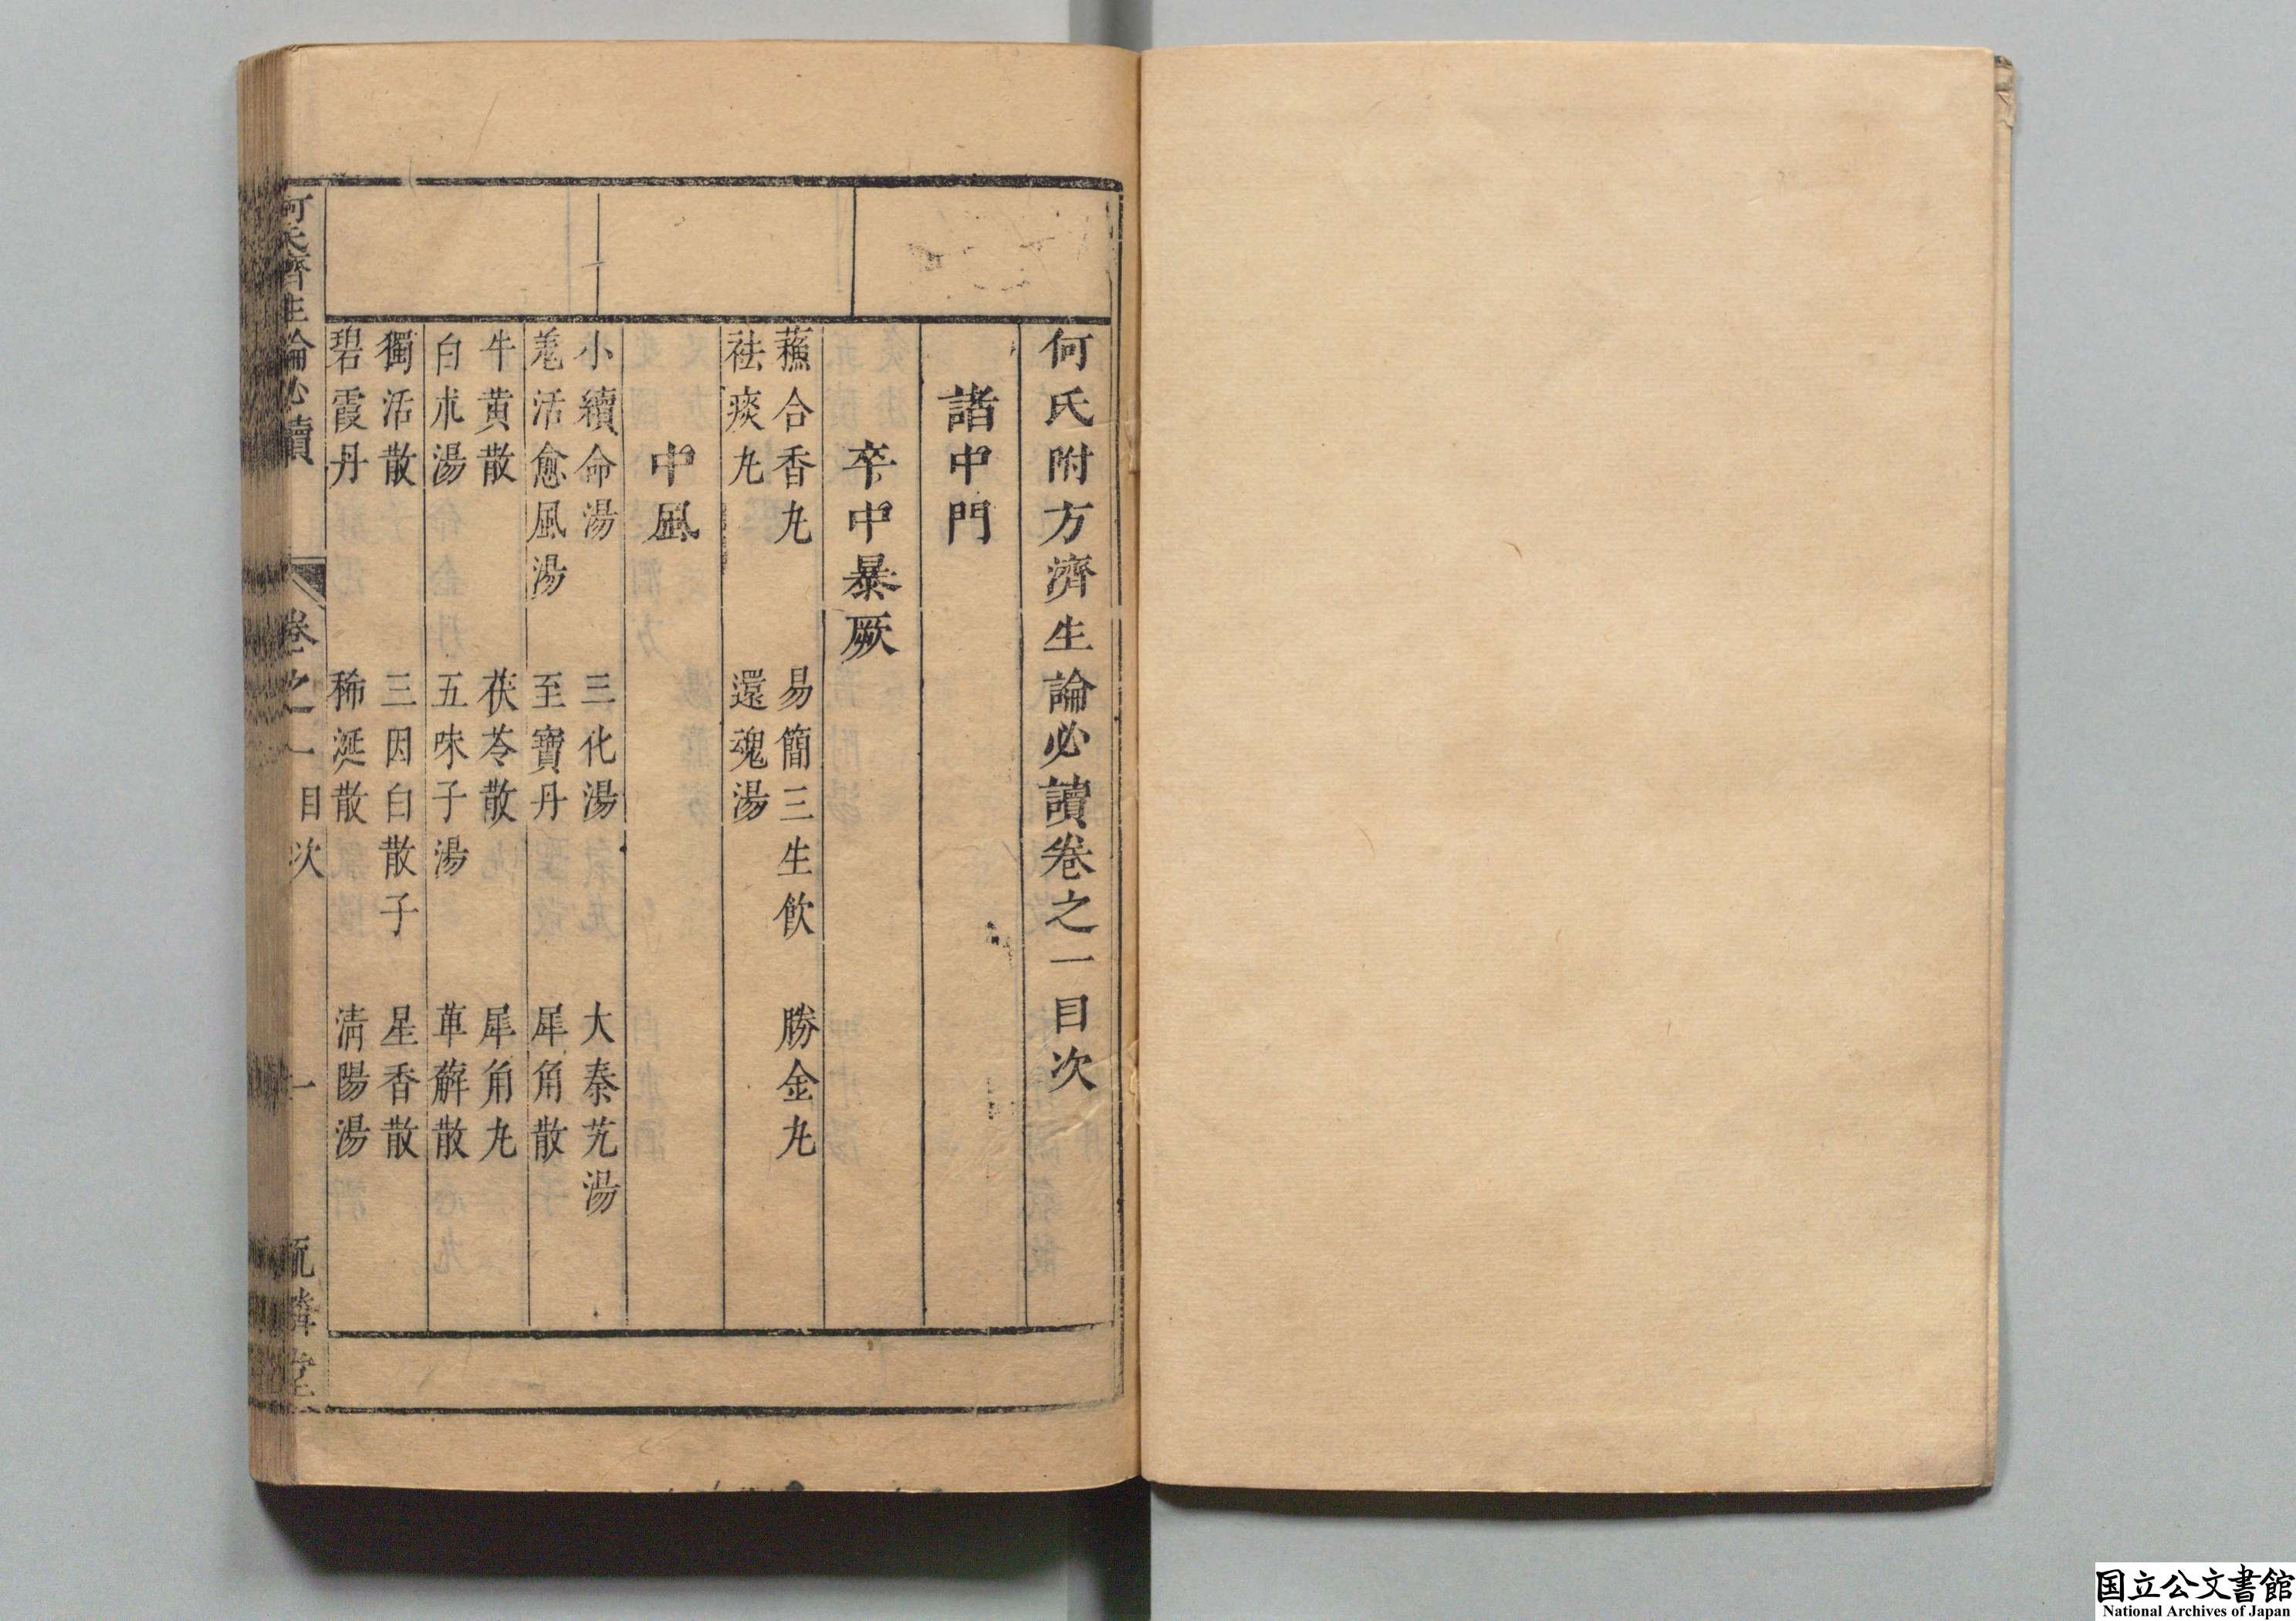 何氏附方濟生論必讀卷之一目次
諸中門
卒中暴厥
蘓合香九 易簡三生飲 勝金九
祛痰九 還魂湯
中風
小續命湯 三化湯 大秦艽湯
羗活愈風湯 至寶丹 犀角散
牛黄散 茯苓散 犀角九
白朮湯 五味子湯 萆薢散
獨活散 三因白散子 星香散
碧霞丹 稀涎散 清陽湯
何氏濟生論必讀 卷之一目次 一 堂
国立公文書館
National Archives of Japan